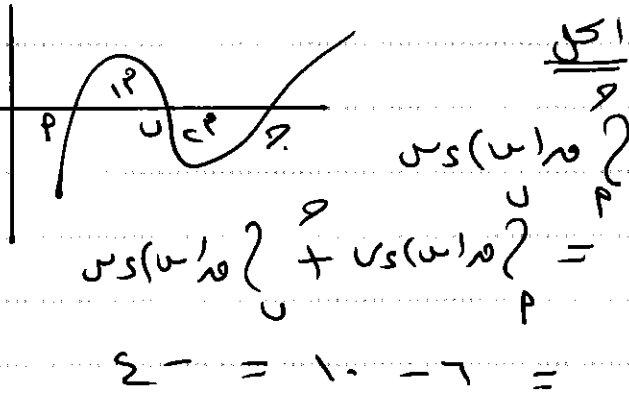 الحل
م١
م٢
P ب ج
∫_P^ج ق(س) دس
= ∫_P^ب ق(س) دس + ∫_ب^ج ق(س) دس
= ٦ − ١٠ = − ٤